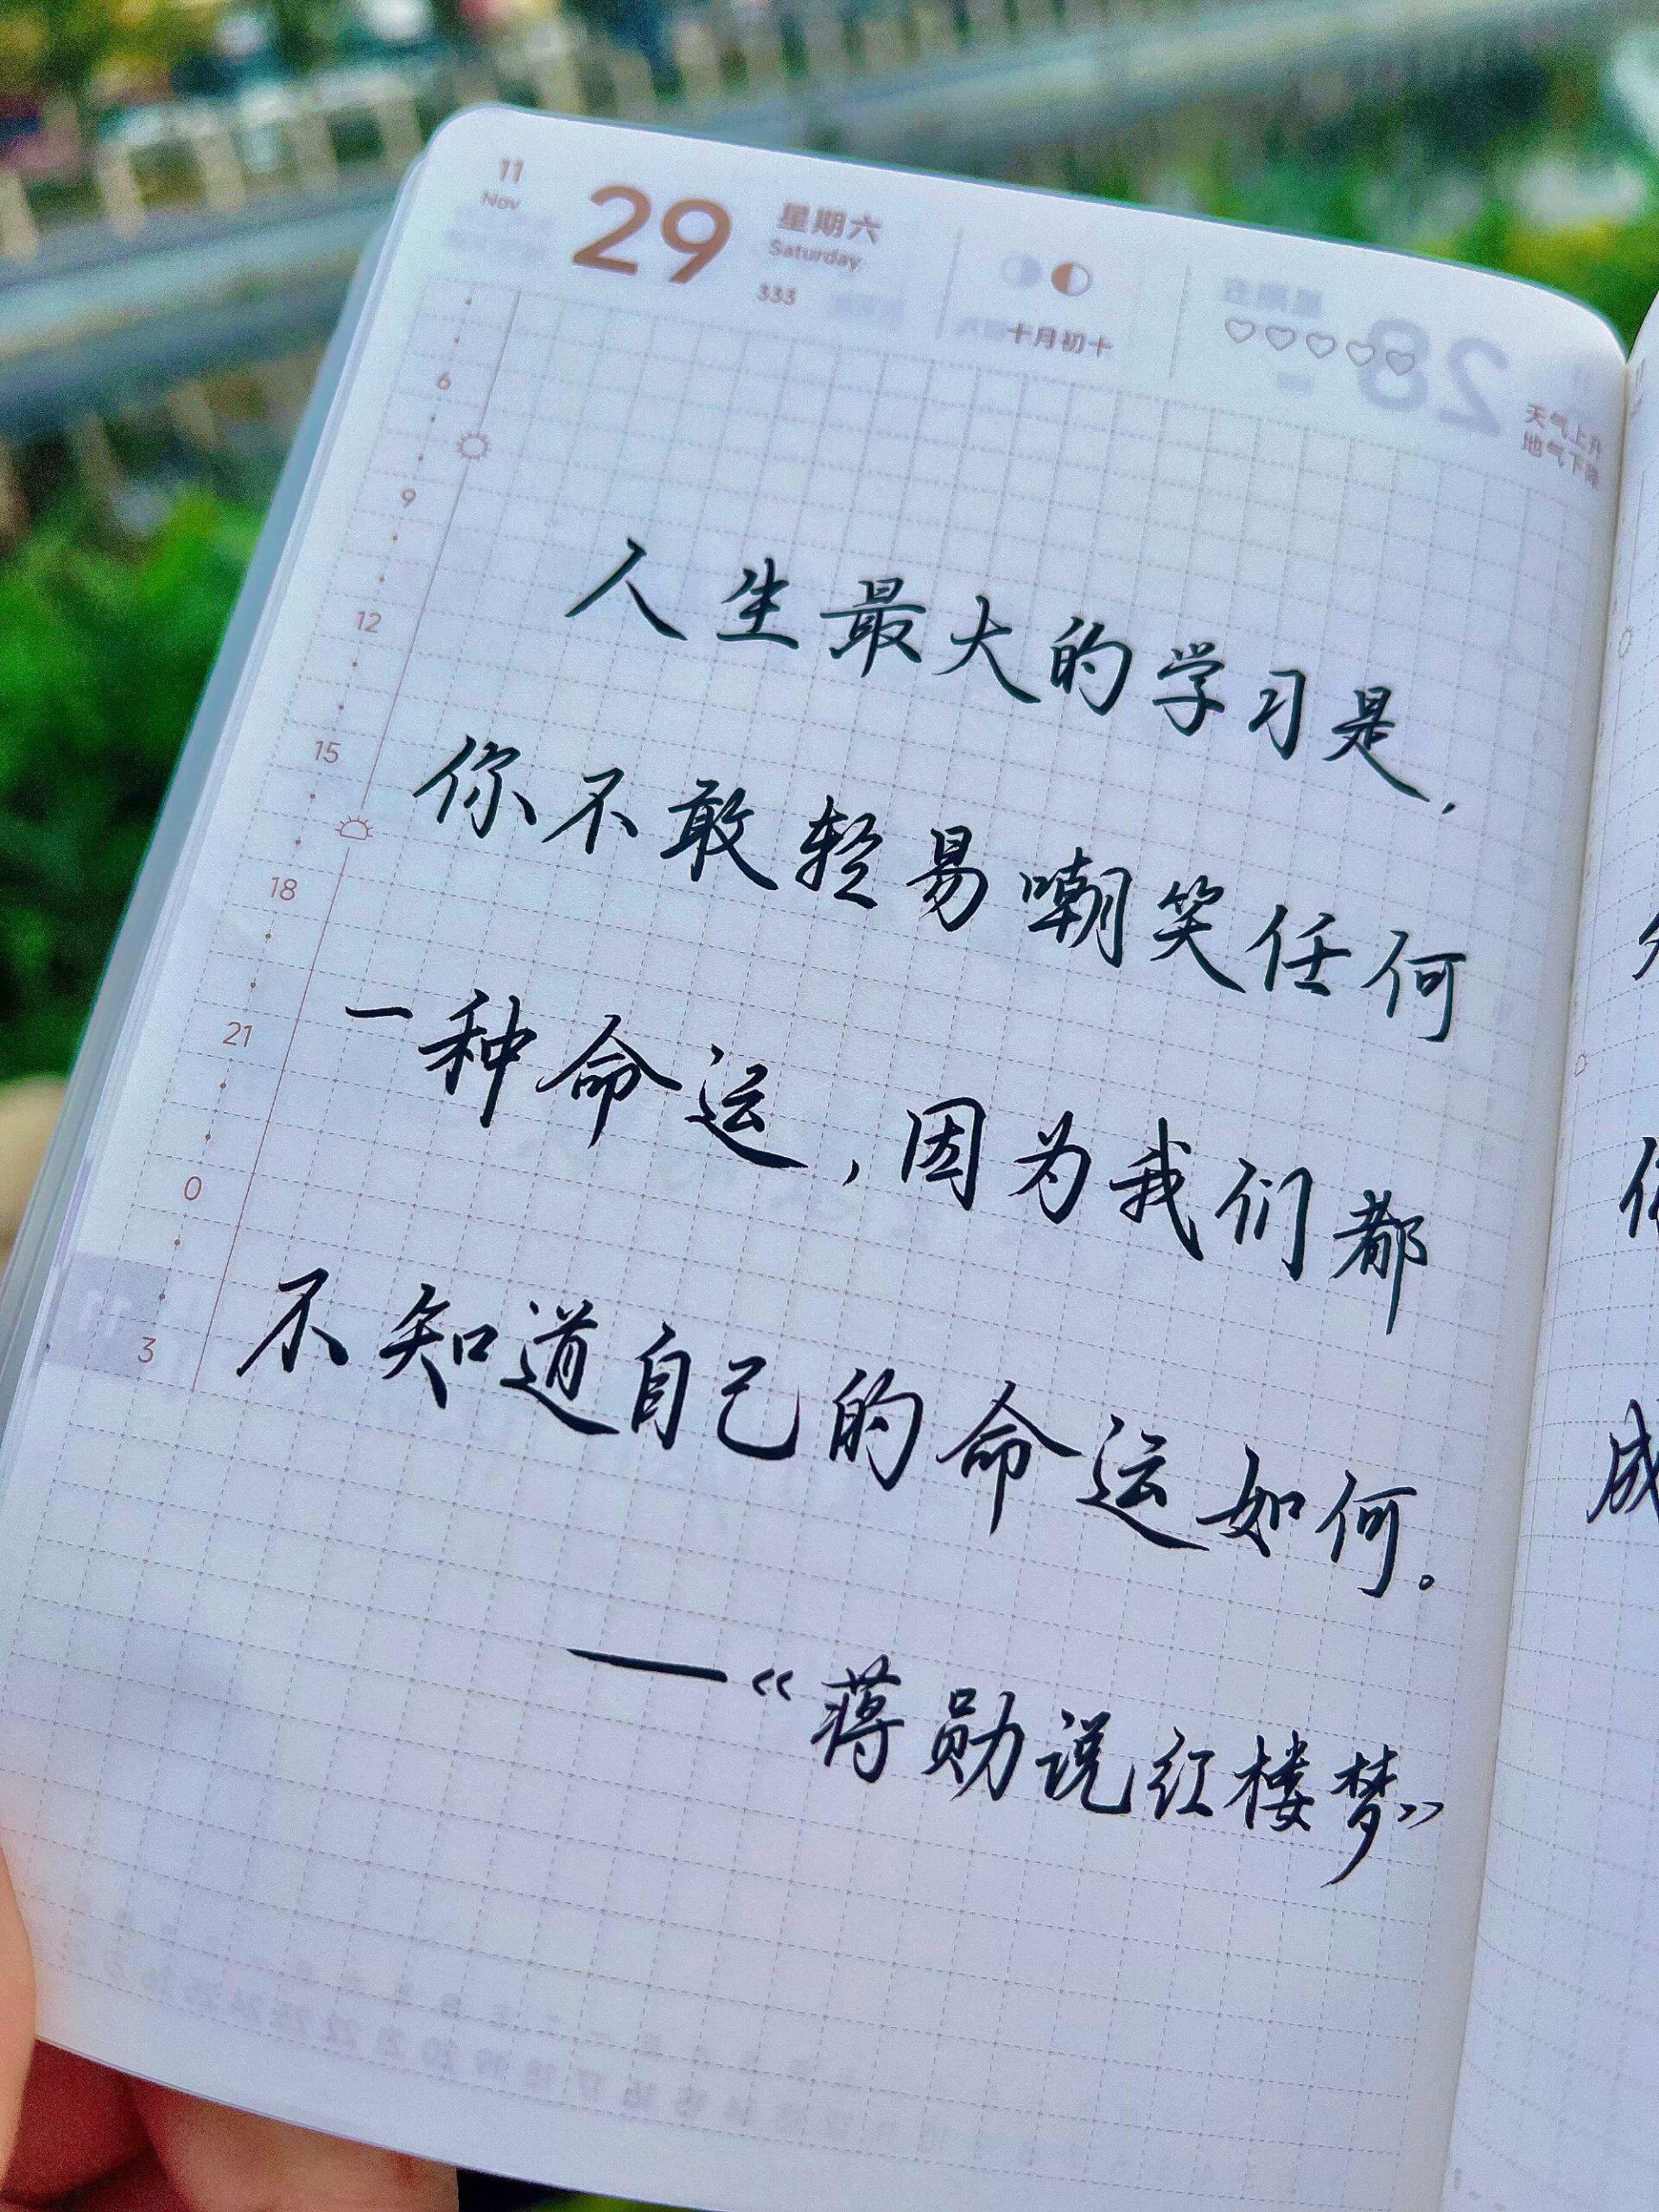 11
Nov
29
星期六
Saturday
333
十月初十
天气上升
地气下降
6
9
12
15
18
21
0
3
人生最大的学习是,
你不敢轻易嘲笑任何
一种命运,因为我们都
不知道自己的命运如何。
—《蒋勋说红楼梦》
成